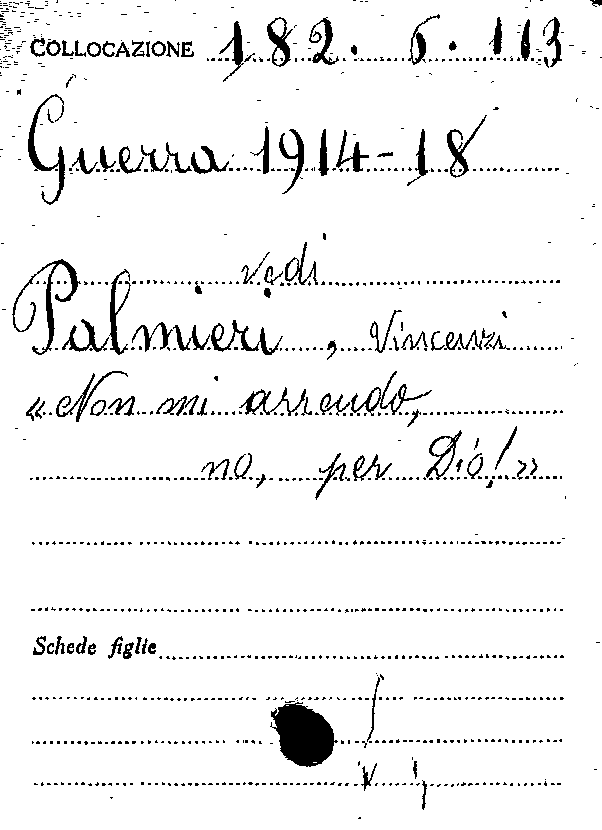 COLLOCAZIONE 182. 6. 113
Guerra 1914-18
vedi
Palmieri, Vincenzi
«Non mi arrendo,
no, per Dio!»
Schede figlie